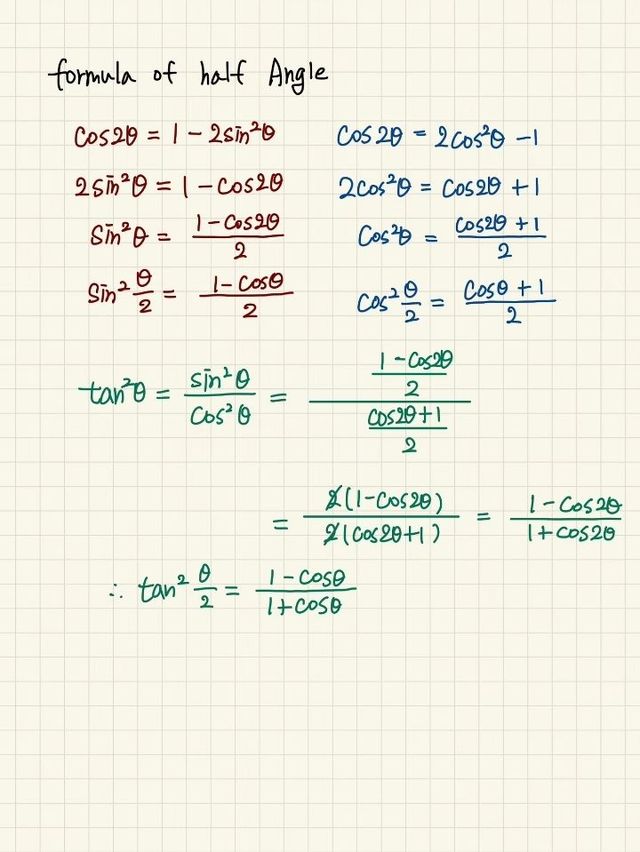 formula of half Angle
cos2θ = 1 - 2sin²θ
2sin²θ = 1 - cos2θ
sin²θ = (1 - cos2θ)/2
sin² θ/2 = (1 - cosθ)/2
cos2θ = 2cos²θ - 1
2cos²θ = cos2θ + 1
cos²θ = (cos2θ + 1)/2
cos² θ/2 = (cosθ + 1)/2
tan²θ = sin²θ/cos²θ = ((1 - cos2θ)/2)/((cos2θ + 1)/2)
= 2(1 - cos2θ)/2(cos2θ + 1) = (1 - cos2θ)/(1 + cos2θ)
∴ tan² θ/2 = (1 - cosθ)/(1 + cosθ)